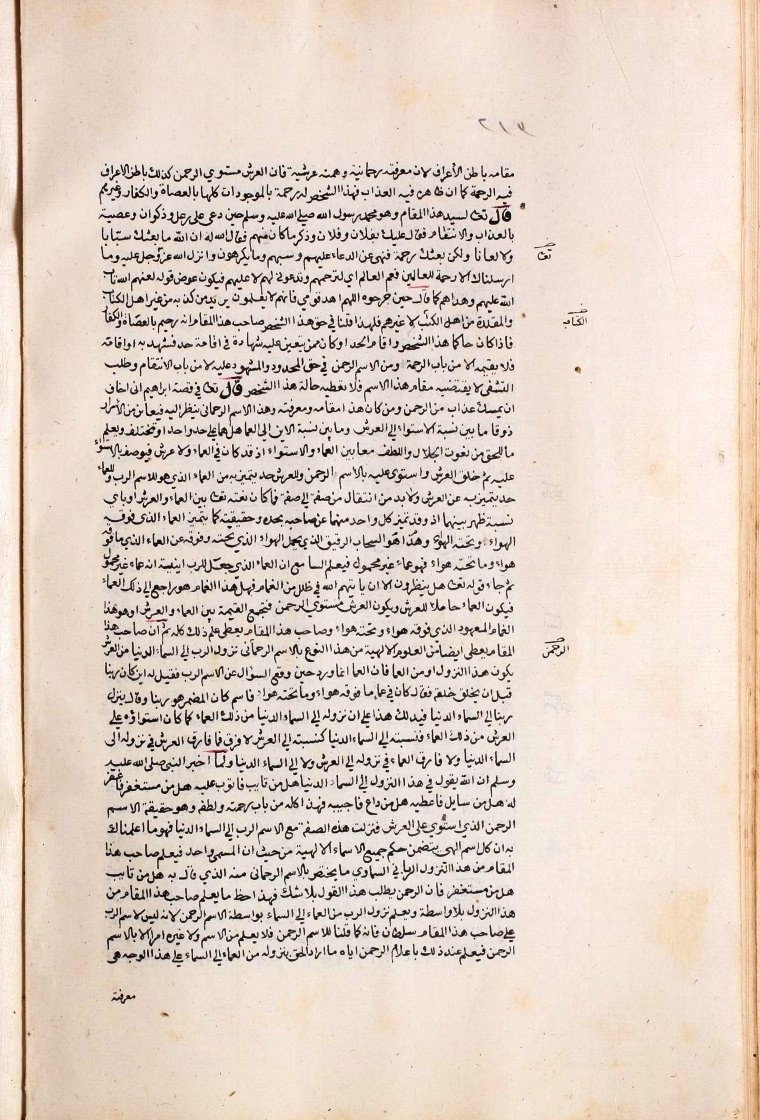 مقامه باطن الأعراف لان معرفته رحمانية وهمته عرشية فان العرش مستوى الرحمن كذلك باطن الاعراف
فيه الرحمة كما ان ظاهره فيه العذاب فهذا الشخص له رحمة بالموجودات كلها بالعصاة والكفار وغيرهم
قال تعا لسيد هذا المقام وهو محمد رسول الله صلى الله عليه وسلم حين دعى على رعل وذكوان وعصية
بالعذاب والانتقام فقال عليك بفلان وفلان وذكر ما كان منهم فقال الله له ان الله ما بعثك سبّابا
ولا لعانا ولكن بعثك رحمة فنهى عن الدعاء عليهم وسبهم وما يكرهون وانزل الله عز وجل عليه وما
ارسلناك الا رحمة للعالمين فعم العالم اي لترحمهم وتدعوني لهم لا عليهم فيكون عوض قوله لعنهم الله تاب
الله عليهم وهداهم كما قال حين جرحوه اللهم اهد قومي فانهم لا يعلمون يريد من كذبه من غير اهل الكتاب
والمقلدة من اهل الكتب لا غيرهم فلهذا قلنا في حق هذا الشخص صاحب هذا المقام انه رحيم بالعصاة والكفار
فاذا كان حاكما هذا الشخص واقام الحد او كان ممن يتعين عليه شهادة في اقامة حد فشهد به او اقامه
فلا يقيمه الا من باب الرحمة ومن الاسم الرحمن في حق المحدود والمشهود عليه لا من باب الانتقام وطلب
التشفي لا يقتضيه مقام هذا الاسم فلا تعطيه حالة هذا الشخص قال تعا في قصة ابراهيم اني اخاف
ان يمسك عذاب من الرحمن ومن كان هذا مقامه ومعرفته وهذا الاسم الرحمانى ينظر اليه فيعاين من الأسرار
ذوقا ما بين نسبة الاستواء الى العرش وما بين نسبة الاين الى العما هل هما على حد واحد او يختلف ويعلم
ما للحق من نعوت الجلال واللطف معا بين العماء والاستواء اذ قد كان في العماء ولا عرش فيوصف بالاستواء
عليه ثم خلق العرش واستوى عليه بالاسم الرحمن وللعرش حد يتميز به من العماء الذي هو للاسم الرب وللعماء
حد يتميز به عن العرش ولا بد من انتقال من صفة الى صفة فما كان نعته تعا بين العماء والعرش او باي
نسبة ظهر بينهما اذ وقد تميز كل واحد منهما عن صاحبه بحده وحقيقته كما يتميز العماء الذي فوقه
الهواء وتحته الهواء وهذا هو السحاب الرقيق الذي يحمل الهواء الذي تحته وفوقه عن العماء الذي ما فوقه
هواء وما تحته هواء فهو عماء غير محمول فيعلم السامع ان العماء الذي جعل للرب اينية انه عماء غير محمول
ثم جاء قوله تعا هل ينظرون الا ان ياتيهم الله في ظلل من الغمام فهل هذا الغمام هو راجع الى ذلك العماء
فيكون العماء حاملا للعرش ويكون العرش مستوى الرحمن فتجمع القيمة بين العماء والعرش او هو هذا
الغمام المعهود الذي فوقه هواء وتحته هواء وصاحب هذا المقام يعطى علم ذلك كله ثم ان صاحب هذا
المقام يعطى ايضا من العلوم الالهية من هذا النوع بالاسم الرحمانى نزول الرب الى السماء الدنيا من العرش
يكون هذا النزول او من العما فان العما انما ورد حين وقع السؤال عن الاسم الرب فقيل له اين كان ربنا
قبل ان يخلق خلقه فقال كان في عما ما فوقه هواء وما تحته هواء فاسم كان المضمر هو ربنا وقال ينزل
ربنا الى السماء الدنيا فيدلك هذا على ان نزوله الى السماء الدنيا من ذلك العماء كما كان استواؤه على
العرش من ذلك العماء فنسبته الى السماء الدنيا كنسبته الى العرش لا فرق فما فارق العرش في نزوله الى
السماء الدنيا ولا فارق العماء في نزوله الى العرش ولا الى السماء الدنيا ولما اخبر النبي صلى الله عليه
وسلم ان الله يقول في هذا النزول الى السماء الدنيا هل من تايب فاتوب عليه هل من مستغفر فاغفر
له هل من سايل فاعطيه هل من داع فاجيبه فهذا كله من باب رحمته ولطفه وهو حقيقة الاسم
الرحمن الذي استوى على العرش فنزلت هذه الصفة مع الاسم الرب الى السماء الدنيا فهو ما اعلمناك
به ان كل اسم الهي يتضمن حكم جميع الاسماء الالهية من حيث ان المسمى واحد فيعلم صاحب هذا
المقام من هذا النزول الرباني السماوي ما يختص بالاسم الرحمانى منه الذي قال به هل من تايب
هل من مستغفر فان الرحمن يطلب هذا القول بلا شك فهذا حظ ما يعلم صاحب هذا المقام من
هذا النزول بلا واسطة ويعلم نزول الرب من العماء الى السماء بواسطة الاسم الرحمن لانه ليس لاسم الرب
على صاحب هذا المقام سلطان فانه كما قلنا للاسم الرحمن فلا يعلم من الاسم ولا غيره امرا الا بالاسم
الرحمن فيعلم عند ذلك باعلام الرحمن اياه ما اراد الحق بنزوله من العماء الى السماء على هذا الوجه هي
معرفته
تعا
الكتاب
الرحمن